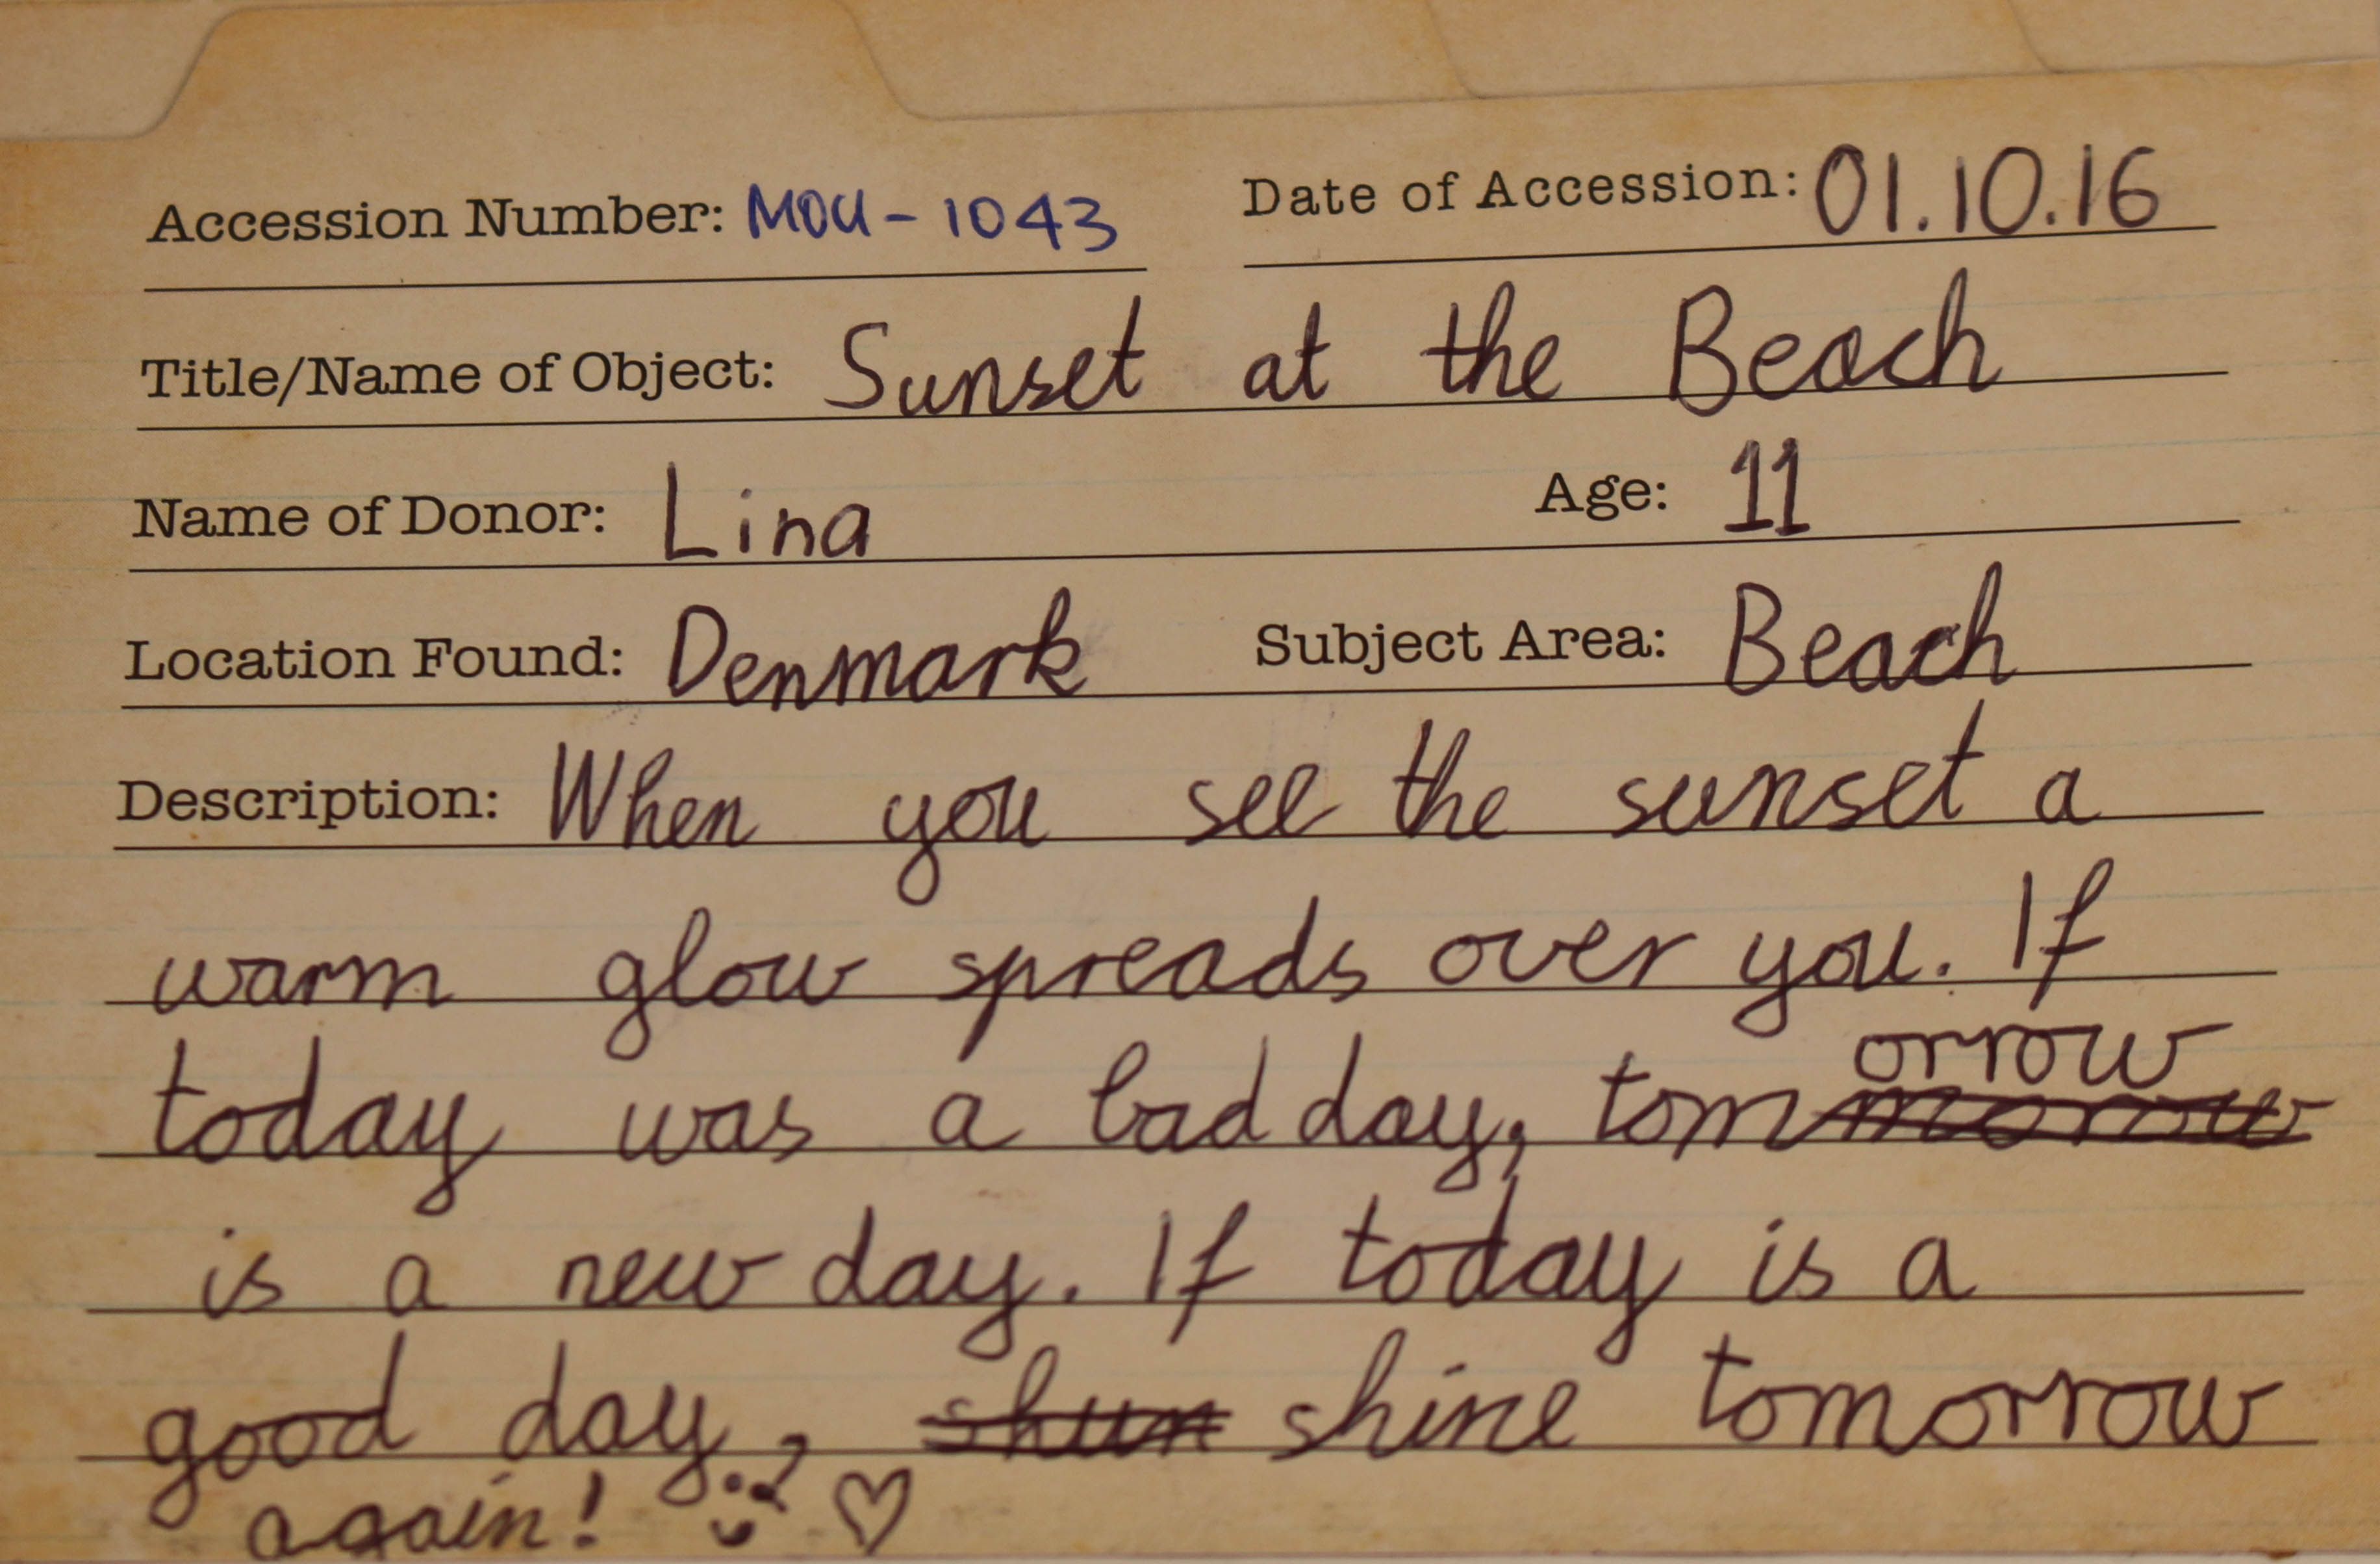 Accession Number: MOU-1043 Date of Accession: 01.10.16
Title/Name of Object: Sunset at the Beach
Name of Donor: Lina Age: 11
Location Found: Denmark Subject Area: Beach
Description: When you see the sunset a
warm glow spreads over you. If
today was a bad day, tomorrow
is a new day. If today is a
good day, shine tomorrow
again!